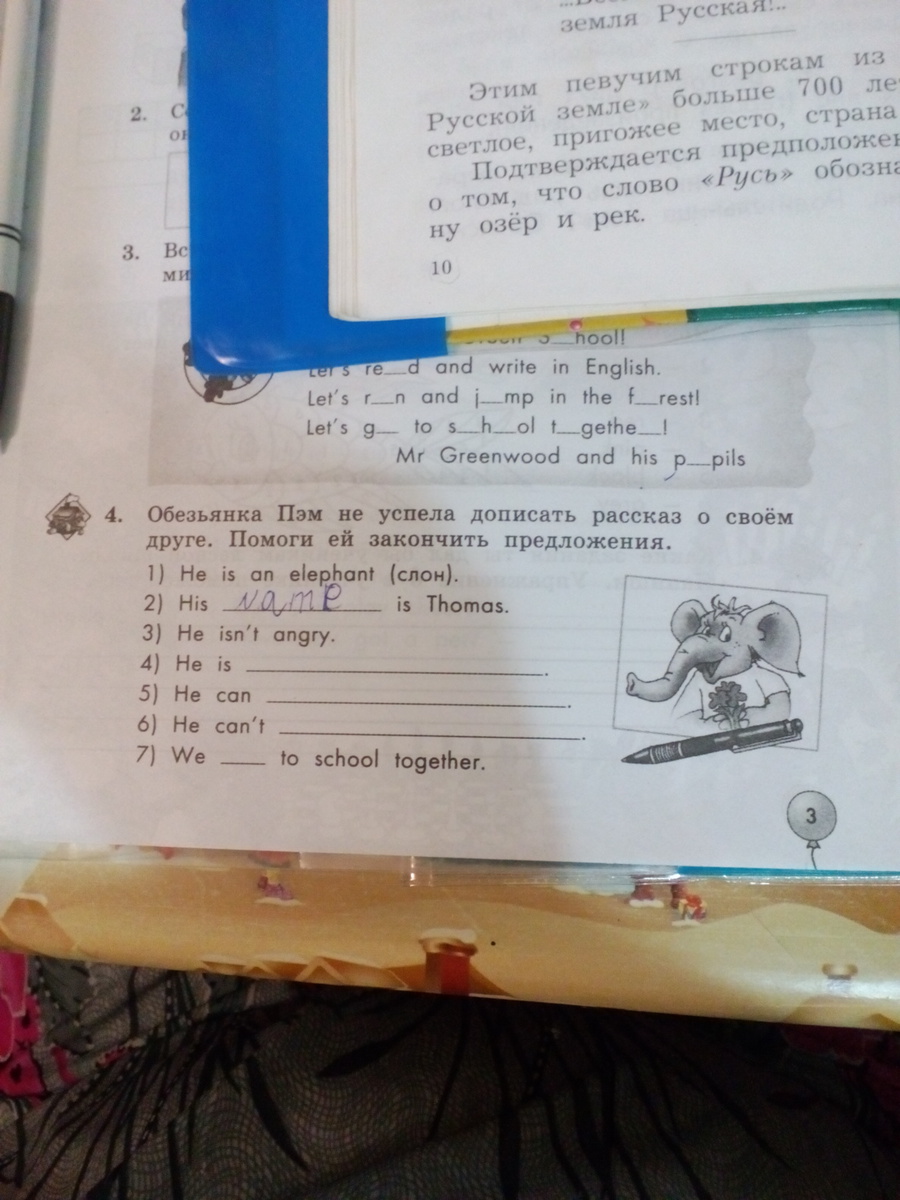 земля Русская!..
Этим певучим строкам из
Русской земле» больше 700
светлое, пригожее место, страна
Подтверждается
о том, что слово «Русь»
ну озёр и рек.
10
2.
3.
hool!
Let's re__d and write in English.
Let's r__n and j__mp in the f__rest!
Let's g__ to s__h__ol t__gethe__!
Mr Greenwood and his p__pils
4. Обезьянка Пэм не успела дописать рассказ о своём
друге. Помоги ей закончить предложения.
1) He is an elephant (слон).
2) His name is Thomas.
3) He isn't angry.
4) He is ____.
5) He can ____.
6) He can't ____.
7) We ____ to school together.
3